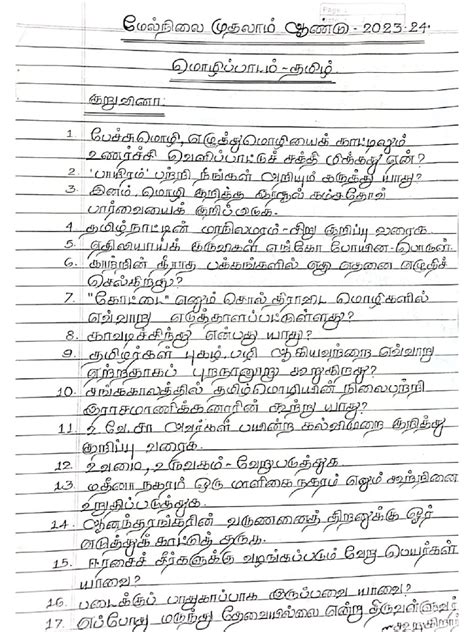 மேல்நிலை முதலாம் ஆண்டு - 2023-24
மொழிப்பாடம் - தமிழ்
குறுவினா:
1. பேச்சுமொழி, எழுத்துமொழியைக் காட்டிலும்
உணர்ச்சி வெளிப்பாட்டுச் சக்தி மிக்கது ஏன்?
2. 'பாயிரம்' பற்றி நீங்கள் அறியும் கருத்து யாது?
3. இனம், மொழி குறித்த ரசூல் கம்சதோவ்
பார்வையைக் குறிப்பிடுக.
4. தமிழ்நாட்டின் மாநிலமரம் - சிறு குறிப்பு வரைக
5. எதிலியாய்க் குருவிகள் எங்கோ போயின - பொருள்
6. காற்றின் தீராத பக்கங்களில் எது எதனை எழுதிச்
செல்கிறது?
7. "கோட்டை" எனும் சொல் திராவிட மொழிகளில்
எவ்வாறு எடுத்தாளப்பட்டுள்ளது?
8. காவடிச்சிந்து என்பது யாது?
9. தமிழர்கள் புகழ், பழி ஆகியவற்றை எவ்வாறு
ஏற்றதாகப் புறநானூறு கூறுகிறது?
10. சங்ககாலத்தில் தமிழ்மொழியின் நிலைபற்றி
இராசமாணிக்கனாரின் கூற்று யாது?
11. உ.வே.சா அவர்கள் பயின்ற கல்விமுறை குறித்து
குறிப்பு வரைக.
12. உவமை, உருவகம் - வேறுபடுத்துக
13. மதீனா நகரம் ஒரு மாளிகைநகரம் எனும் கூற்றினை
உறுதிப்படுத்துக.
14. ஆனந்தரங்கரின் வருணனைத் திறனுக்கு ஓர்
எடுத்துக்காட்டுத் தருக.
15. ஈரசைச் சீர்களுக்கு வழங்கப்படும் வேறு பெயர்கள்
யாவை?
16. படைக்குப் பாதுகாப்பாக இருப்பவை யாவை?
17. எப்போது மருந்து தேவையில்லை என்று திருவள்ளுவர்
கூறுகிறார்